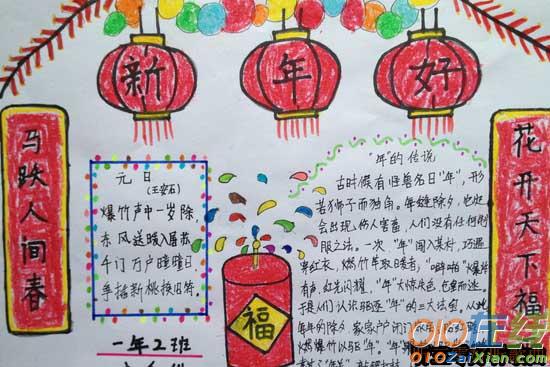 新年好
马跃人间春
花开天下福
元日
(王安石)
爆竹声中一岁除
东风送暖入屠苏
千门万户曈曈日
手 新桃换旧符.
一年2班
福
"年"的传说
古时候有怪兽名曰"年",形
若狮子而独角。年每除夕,
会出现伤人害畜,人们没有任何制
服之法。一次"年"闯入某村,巧遇
穿红衣,燃竹竿取暖者,"啪"爆炸
有声,红光闪耀,"年"大惊失色,
于是人们认识驱逐"年"的三大法宝,从此
每年的除夕 家家户户闭门
燃爆竹以 "年"。"年
o1o在线
o1oZaiXian.com